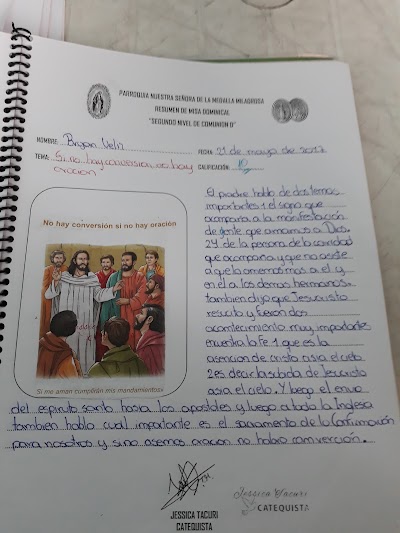 PARROQUIA NUESTRA SEÑORA DE LA MEDALLA MILAGROSA
RESUMEN DE MISA DOMINICAL
"SEGUNDO NIVEL DE COMUNION B"
NOMBRE: Bryan Veliz FECHA: 21 de mayo de 2017
TEMA: Si no hay conversion no hay CALIFICACIÓN: 10
oracion
No hay conversión si no hay oración
Si me aman cumplirán mis mandamientos»
El padre hablo de dos temas
importantes 1 el signo que
acompaña a la manifestación
de gente que amamos a Dios.
2 y de la persona de la caridad
que acompaña y que no
a que lo amemos mas a el y
en el a los demas hermanos.
tambien dijo que Jesucristo
resucito y fueron dos
acontecimiento muy importantes
en la fe 1 que es la
asencion de cristo asia el cielo
2 es decir la subida de Jesucristo
asia el cielo. Y luego el envio
del espiritu santo hasia los apostoles y luego a toda la Inglesa
tambien hablo cual importante es el sacramento de la Confirmación
para nosotros y si no asemos oracion no habra comverción.
JESSICA TACURI
CATEQUISTA
Jessica Tacuri
CATEQUISTA